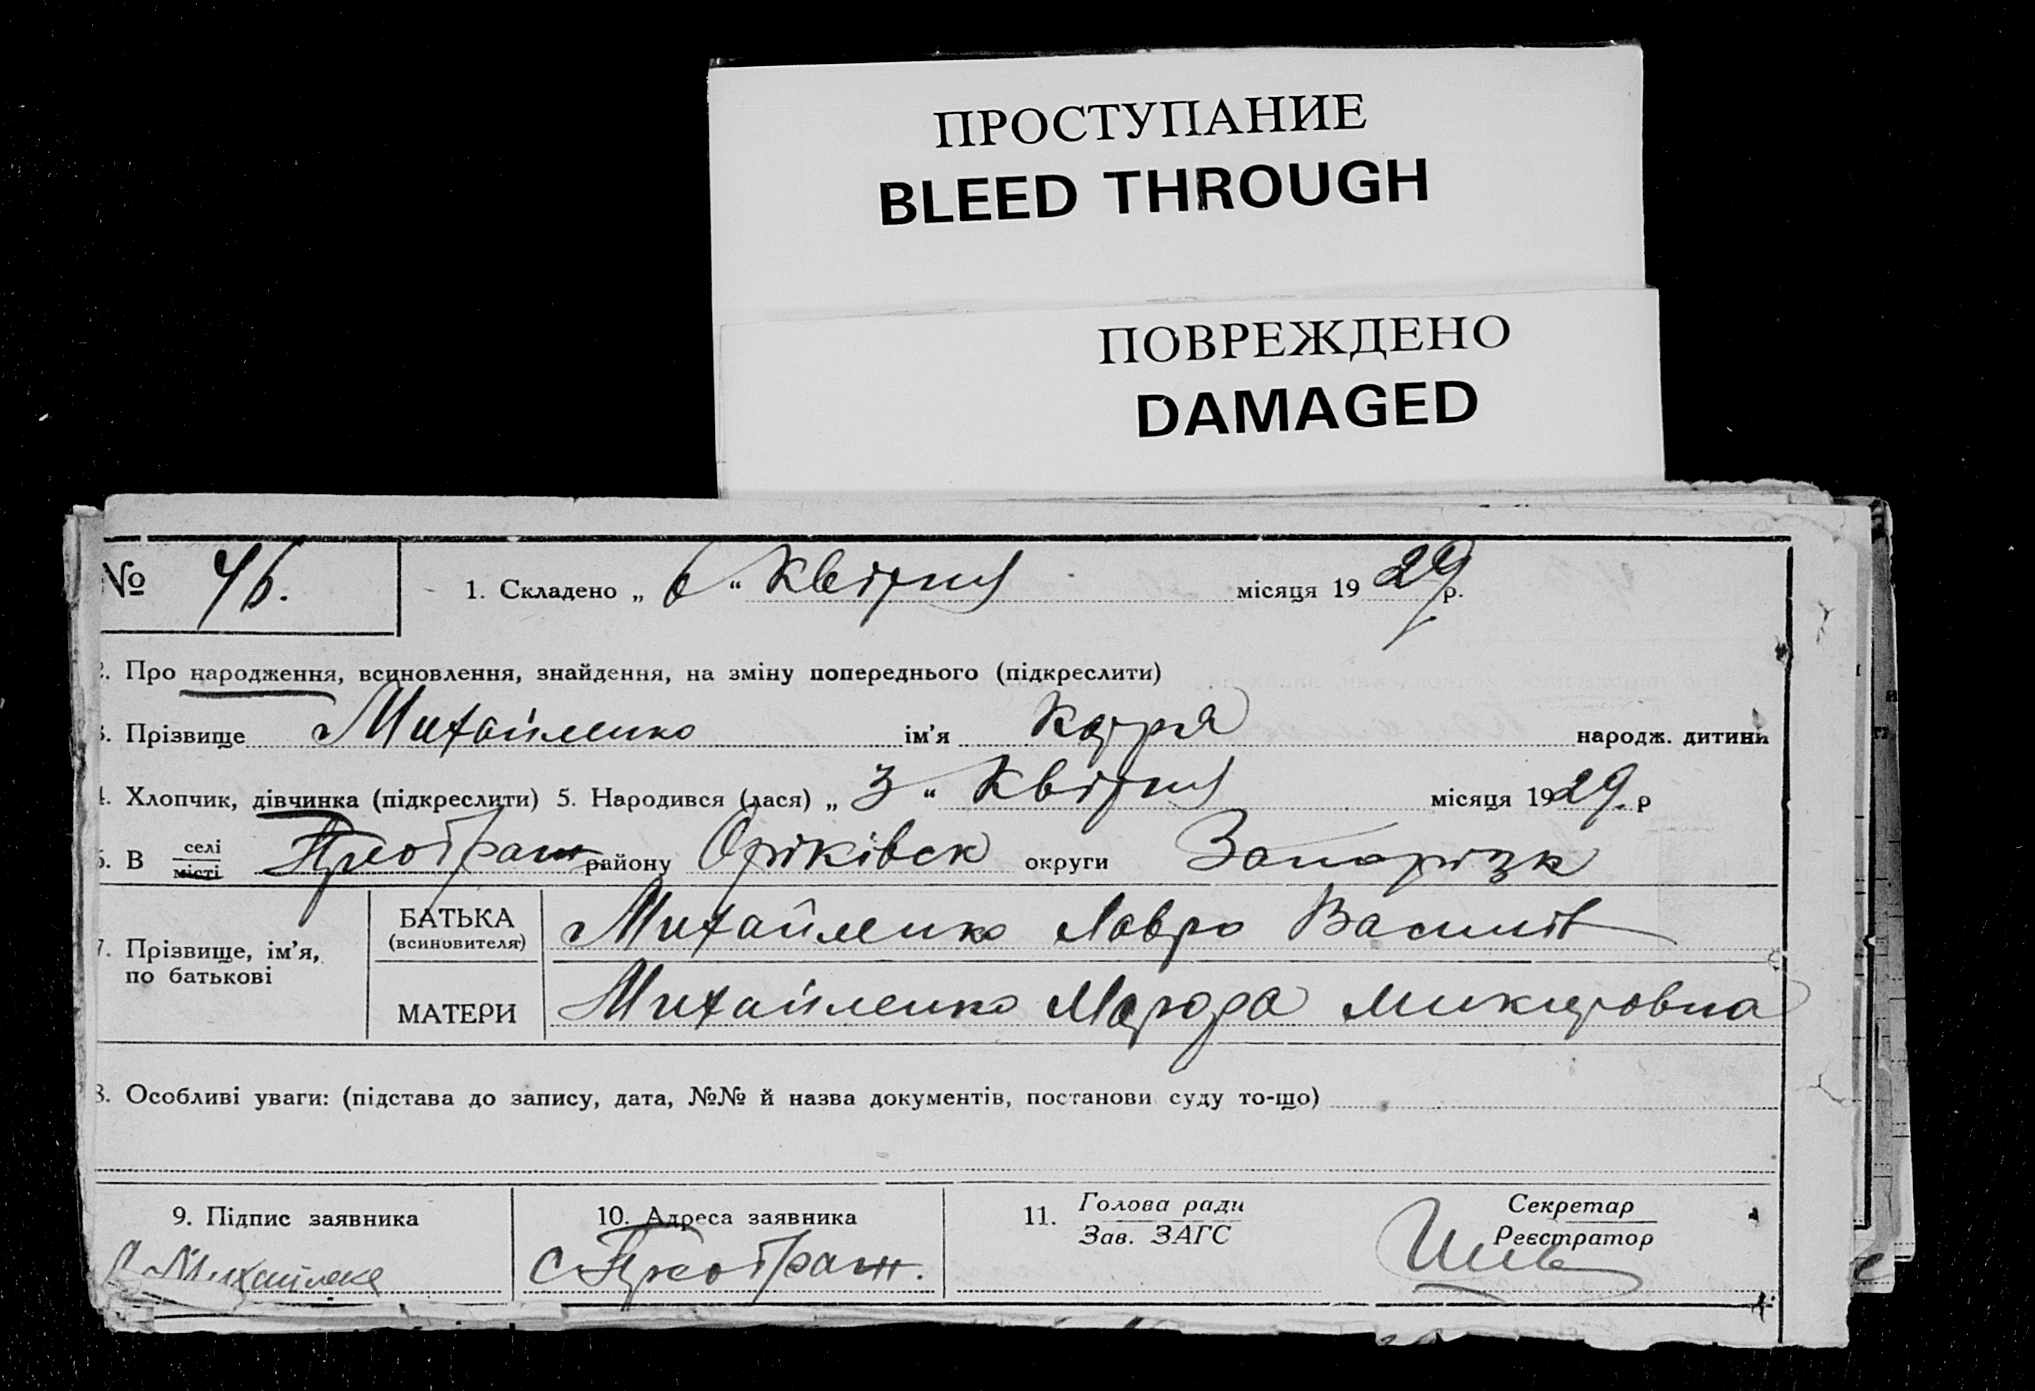 ПРОСТУПАНИЕ
BLEED THROUGH
ПОВРЕЖДЕНО
DAMAGED
№ 46. 1. Складено „ 6 “ Квітня місяця 1929 р.
2. Про народження, всиновлення, знайдення, на зміну попереднього (підкреслити)
3. Прізвище Михайленко ім'я Катря народж. дитини
4. Хлопчик, дівчинка (підкреслити) 5. Народився (лася) „ 3 “ Квітня місяця 1929. р
6. В селі місті Преображ. району Оріківськ округи Запорізк
7. Прізвище, ім'я, по батькові
БАТЬКА (всиновителя) Михайленко Лавро Василів
МАТЕРИ Михайленко Микитовна
8. Особливі уваги: (підстава до запису, дата, №№ й назва документів, постанови суду то-що)
9. Підпис заявника 10. Адреса заявника 11. Голова ради Секретар
Зав. ЗАГС Реєстратор
с. Преображ.